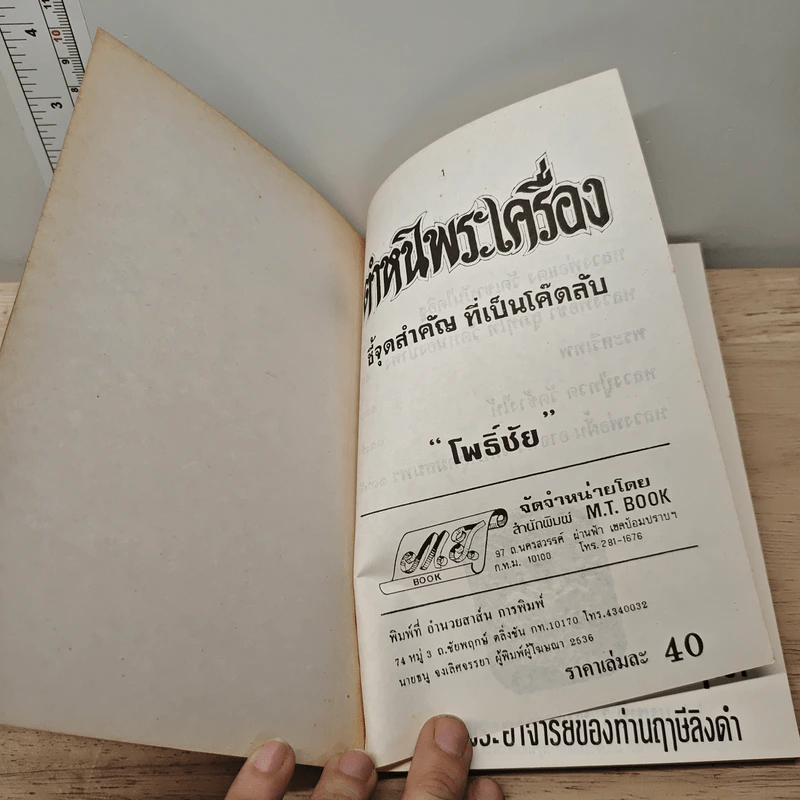 ตำหนิพระเครื่อง
ชี้จุดสำคัญ ที่เป็นโค๊ดลับ
“โพธิ์ชัย”
จัดจำหน่ายโดย
สำนักพิมพ์ M.T. BOOK
97 ถ.นครสวรรค์ ผ่านฟ้า เขตป้อมปราบฯ
ก.ท.ม. 10100 โทร. 281-1676
M.T.
BOOK
พิมพ์ที่ อำนวยสาส์น การพิมพ์
74 หมู่ 3 ถ.ชัยพฤกษ์ ตลิ่งชัน กท.10170 โทร.4340032
นายชนู จงเลิศจรรยา ผู้พิมพ์ผู้โฆษณา 2536
ราคาเล่มละ 40
พระอาจารย์ของท่านฤาษีลิงดำ
4
10
9
3
8